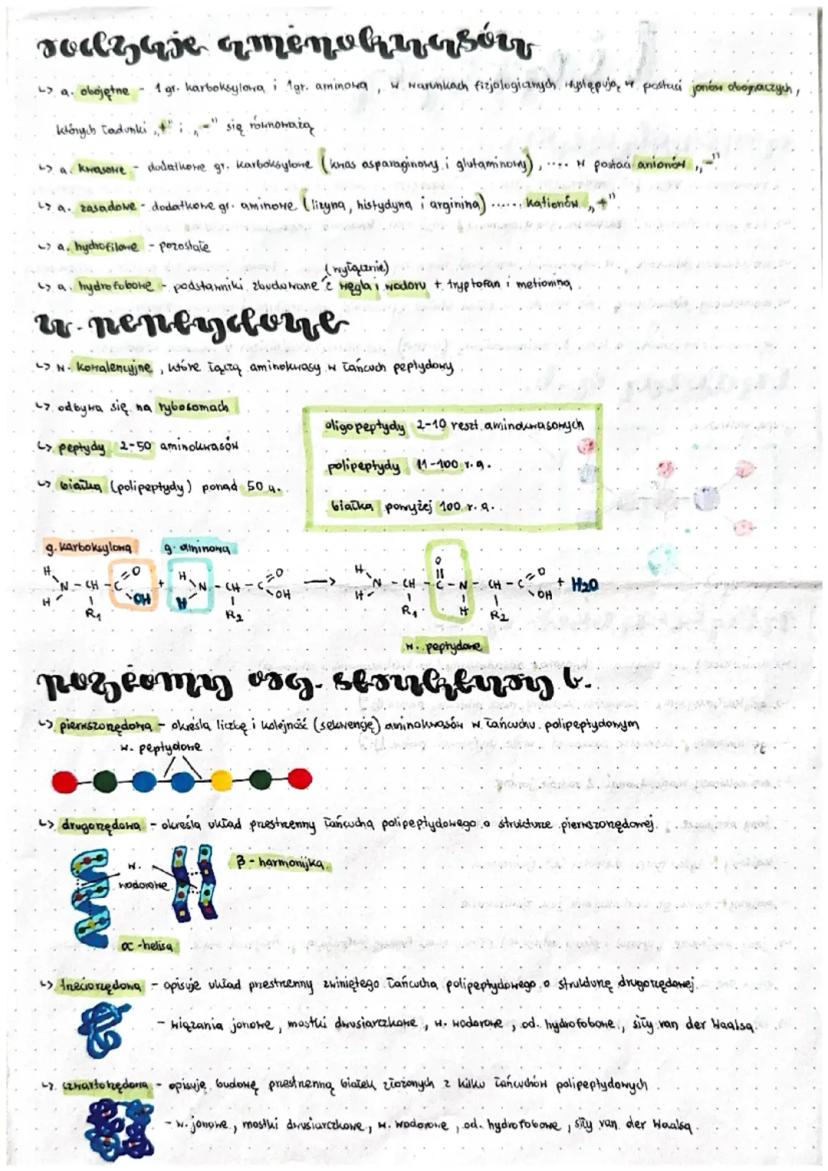 rodzaje aminokwasów
↳ a. obojętne - 1 gr. karboksylowa i 1 gr. aminowa, w warunkach fizjologicznych występują w postaci jonów obojnaczych,
których ładunki „+" i „-" się równoważą
↳ a. kwasowe - dodatkowe gr. karboksylowe (kwas asparaginowy i glutaminowy), .... w postaci anionów „-"
↳ a. zasadowe - dodatkowe gr. aminowe (lizyna, histydyna i arginina) ...... kationów „+"
↳ a. hydrofilowe - pozostałe
(wyłącznie)
↳ a. hydrofobowe - podstawniki zbudowane z węgla i wodoru + tryptofan i metionina
w. peptydowe
↳ w. kowalencyjne, które łączą aminokwasy w łańcuch peptydowy
↳ odbywa się na rybosomach
↳ peptydy 2-50 aminokwasów
↳ białka (polipeptydy) ponad 50 a.
oligopeptydy 2-10 reszt aminokwasowych
polipeptydy 11-100 r. a.
białka powyżej 100 r. a.
g. karboksylowa g. aminowa
H O H O H O O
N - CH - C + N - CH - C → N - CH - C - N - CH - C + H2O
H R1 OH H R2 OH H R1 H R2 OH
w. peptydowe
poziomy org. struktury b.
↳ pierwszorzędowa - określa liczbę i kolejność (sekwencję) aminokwasów w łańcuchu polipeptydowym
w. peptydowe
↳ drugorzędowa - określa układ przestrzenny łańcucha polipeptydowego o strukturze pierwszorzędowej.
w. wodorowe
β - harmonijka
α - helisa
↳ trzeciorzędowa - opisuje układ przestrzenny zwiniętego łańcucha polipeptydowego o strukturę drugorzędowej.
- wiązania jonowe, mostki dwusiarczkowe, w. wodorowe, od. hydrofobowe, siły van der Waalsa
↳ czwartorzędowa - opisuję budowę przestrzenną białek złożonych z kilku łańcuchów polipeptydowych
- w. jonowe, mostki dwusiarczkowe, w. wodorowe, od. hydrofobowe, siły van der Waalsa